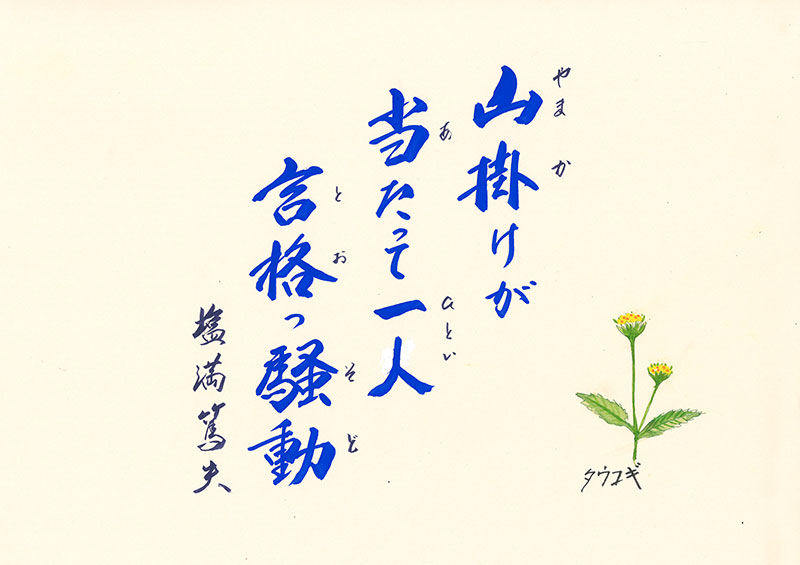 山掛けが
やまか
当たって一人
あひとい
言格っ騒動
とおそど
塩満篤夫
タウコギ